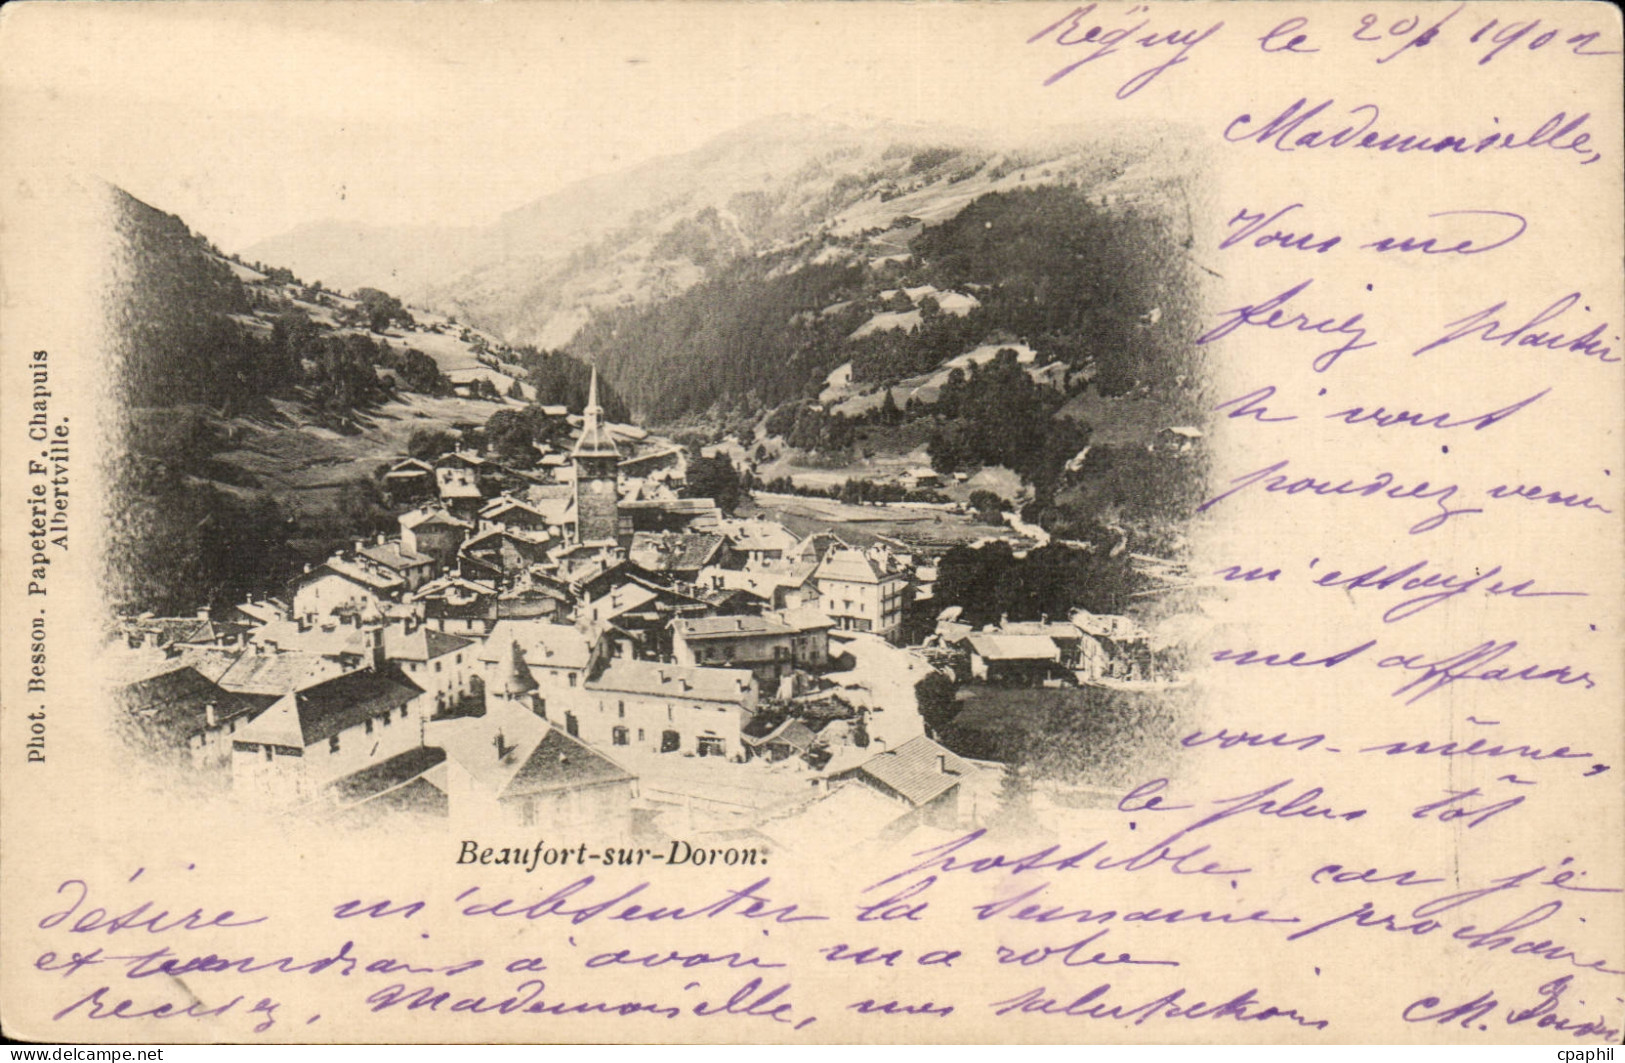 le 20/ 1902
Mademoiselle,
Vous me
feriez plaisir
si vous
pourriez venir
m'essayer
mes affaires
vous-même,
le plus tôt
possible car je
désire m'absenter la semaine prochaine
et tiendrais à avoir ma robe
Recevez, Mademoiselle, mes salutations M.
Beaufort-sur-Doron.
Phot. Besson. Papeterie F. Chapuis
Albertville.
© cpaphil